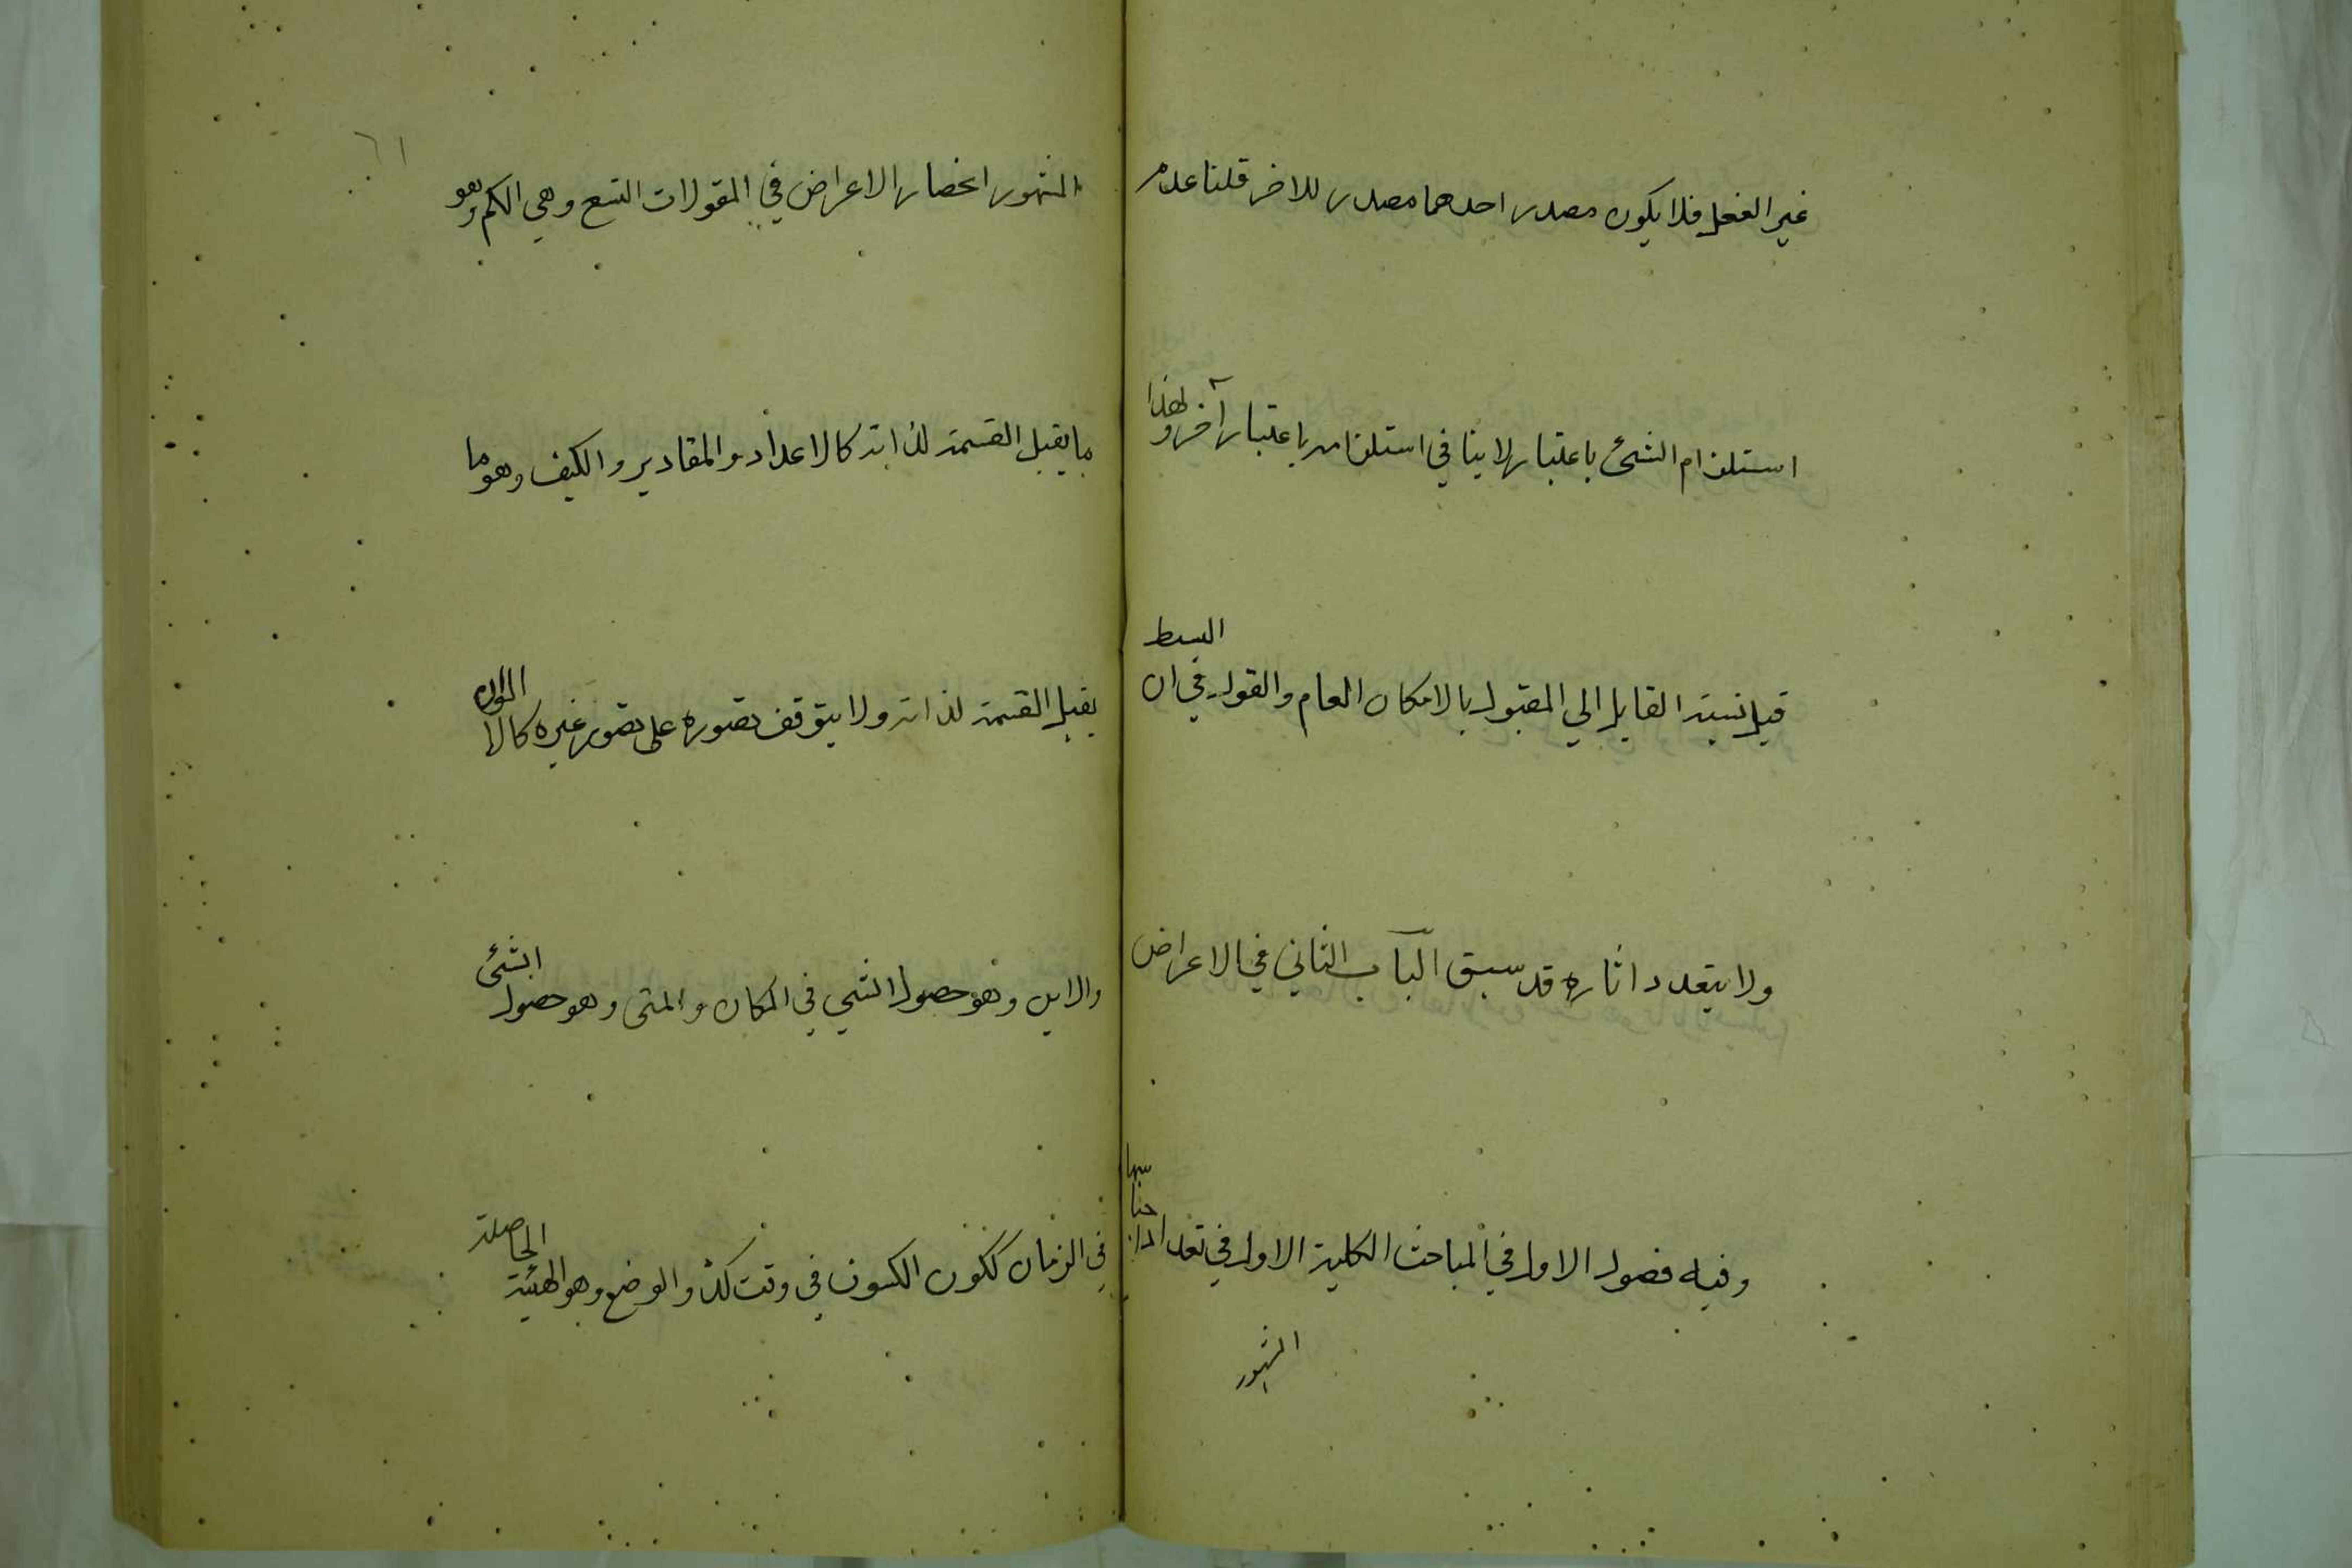 غير الفعل فلا يكون مصدر احدهما مصدر للاخر قلنا عدم
استلزام الشئ باعتبار لا ينافي استلزامه باعتبار آخر ولهذا
قيل نسبة القابل الي المقبول بالامكان العام والقول في ان البسيط
ولا يتعدد اثاره قد سبق الباب الثاني في الاعراض
وفيه فصول الاول في المباحث الكلية الاول في تعداد اجناسها
المشهور
٦١
المشهور انحصار الاعراض في المقولات التسع وهي الكم وهو
ما يقبل القسمة لذاته كالاعداد والمقادير والكيف وهو ما
يقبل القسمة لذاته ولا يتوقف تصوره على تصور غيره كالالوان
والاين وهو حصول الشي في المكان والمتى وهو حصول الشئ
في الزمان ككون الكسوف في وقت كذا والوضع وهو الهيئة الحاصلة